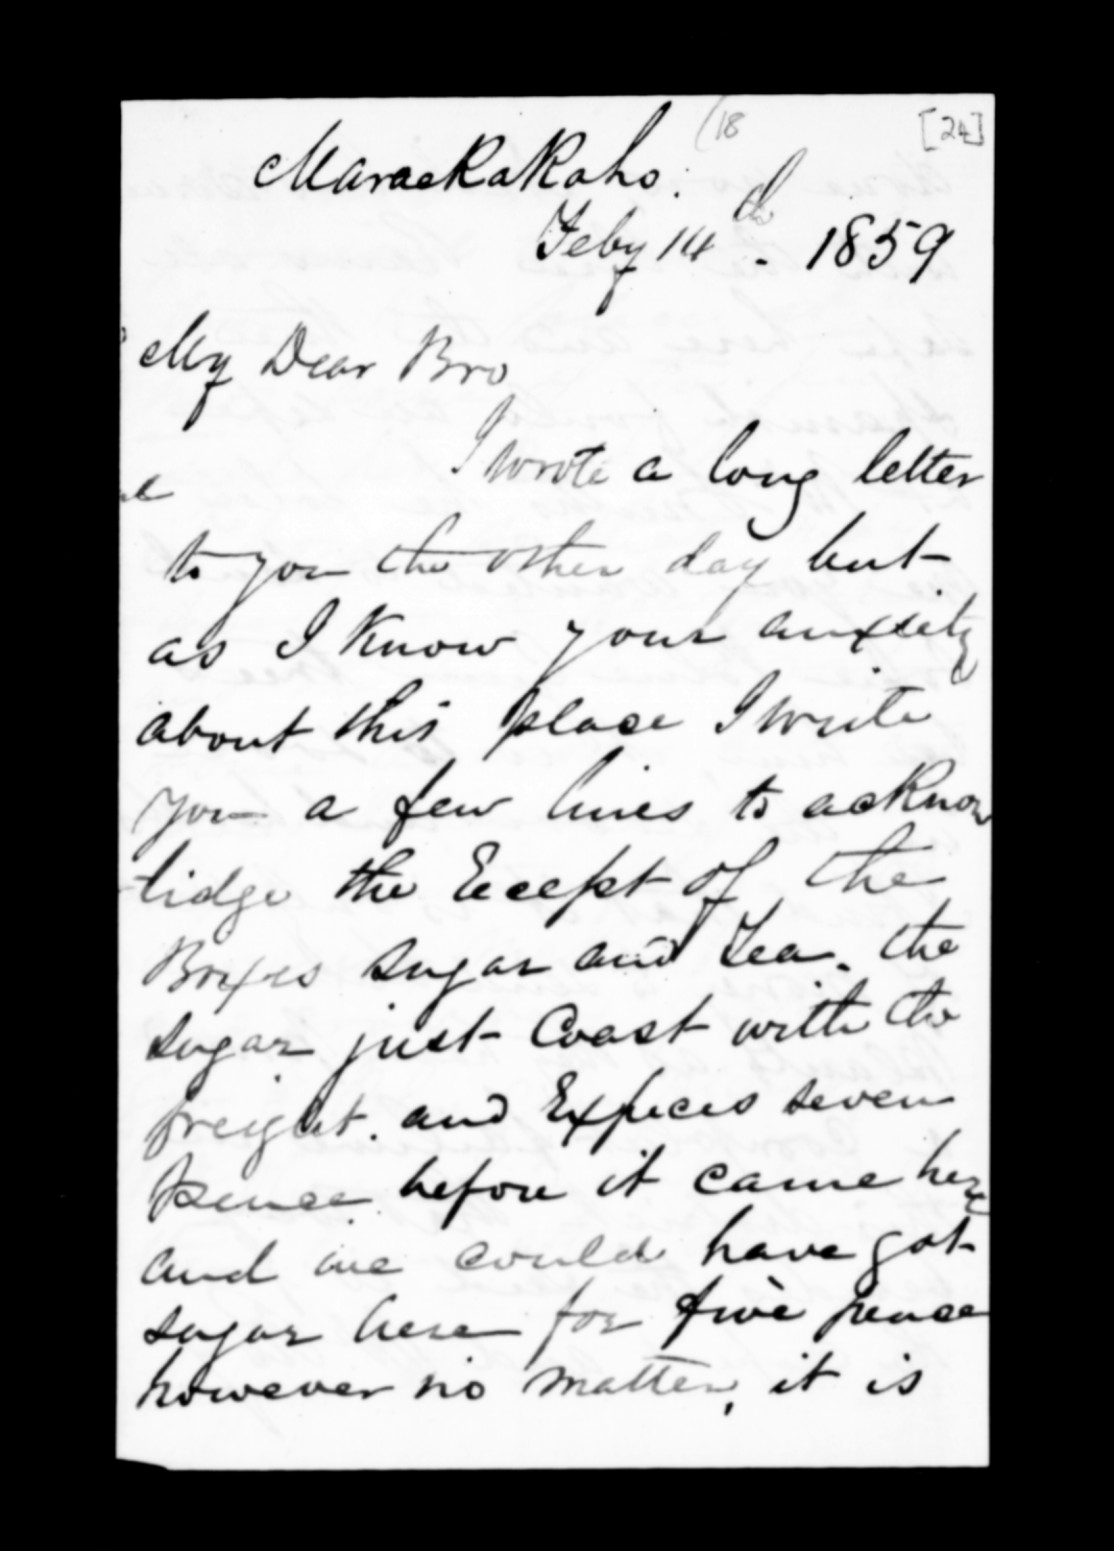 (18 [24]
MaraeKaKaho.
Feby 14th. 1859
My Dear Bro
I wrote a long letter
to you the other day but
as I Know your anxeity
about this place I write
you a few lines to acKnow
lidge the Recept of the
Boxes sugar and Tea. the
sugar just Coast with the
freight. and Expeces seven
pence before it came here
and we could have got
sugar here for five pence
however no matter, it is